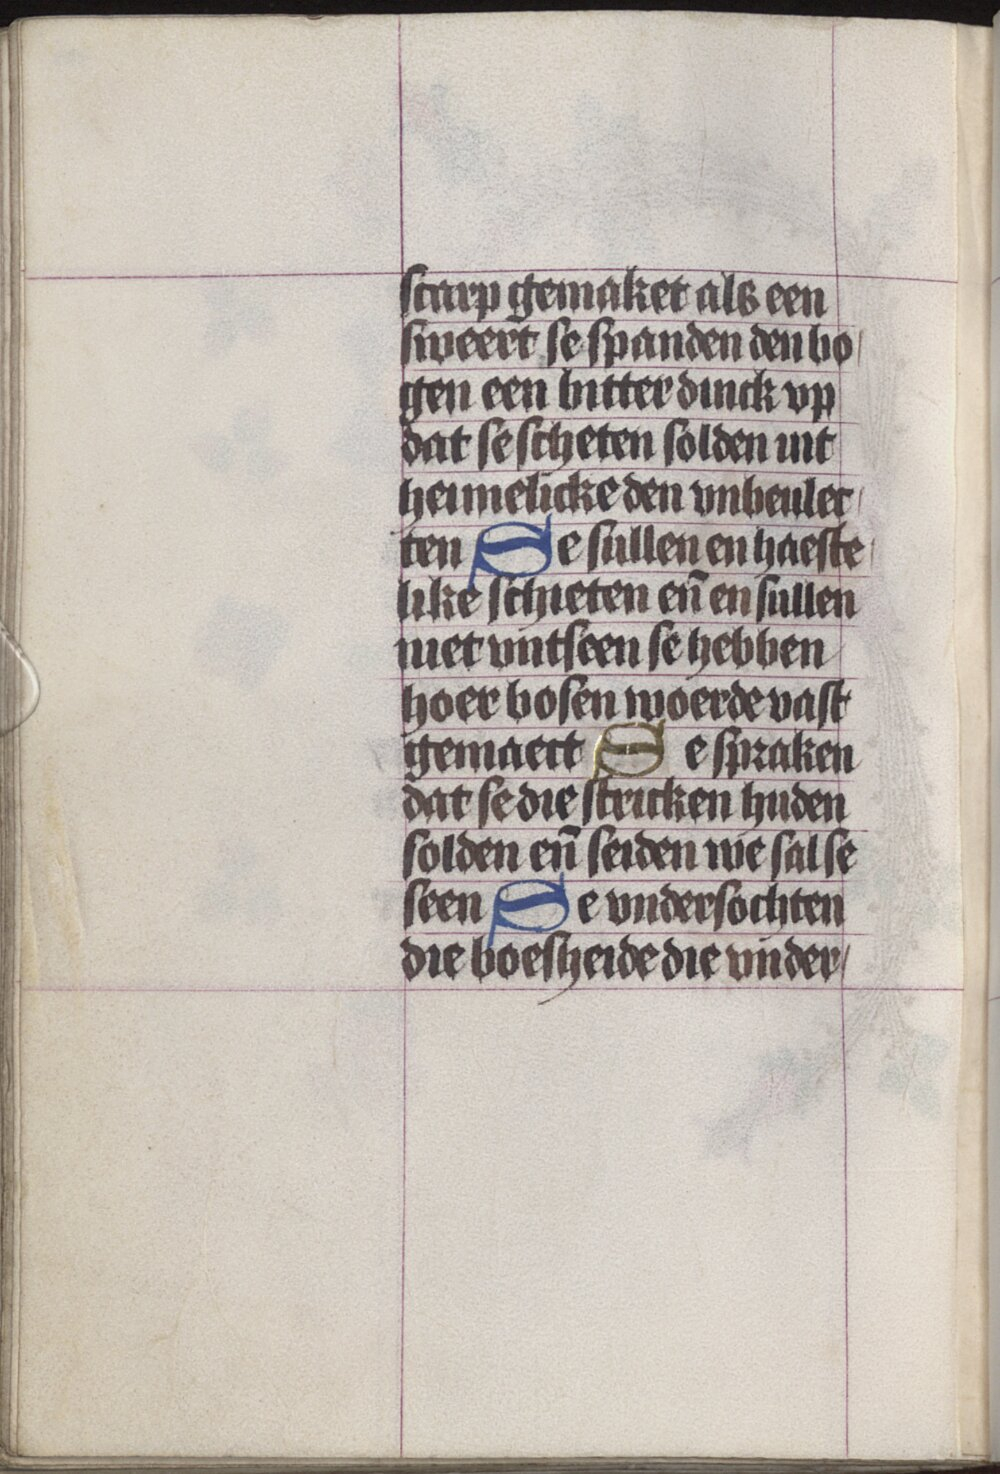 scarp gemaket als een
sweert se spanden den bo
gen een bitter dinck vp
dat se scheten solden int
heimelicke den vnbeulec
ten Se sullen en haeste
like schieten en̄ en sullen
niet vntseen se hebben
hoer bosen woerde vast
gemaect Se spraken
dat se die stricken huden
solden en̄ seiden wie sal se
seen Se vndersochten
die boesheide die vnder